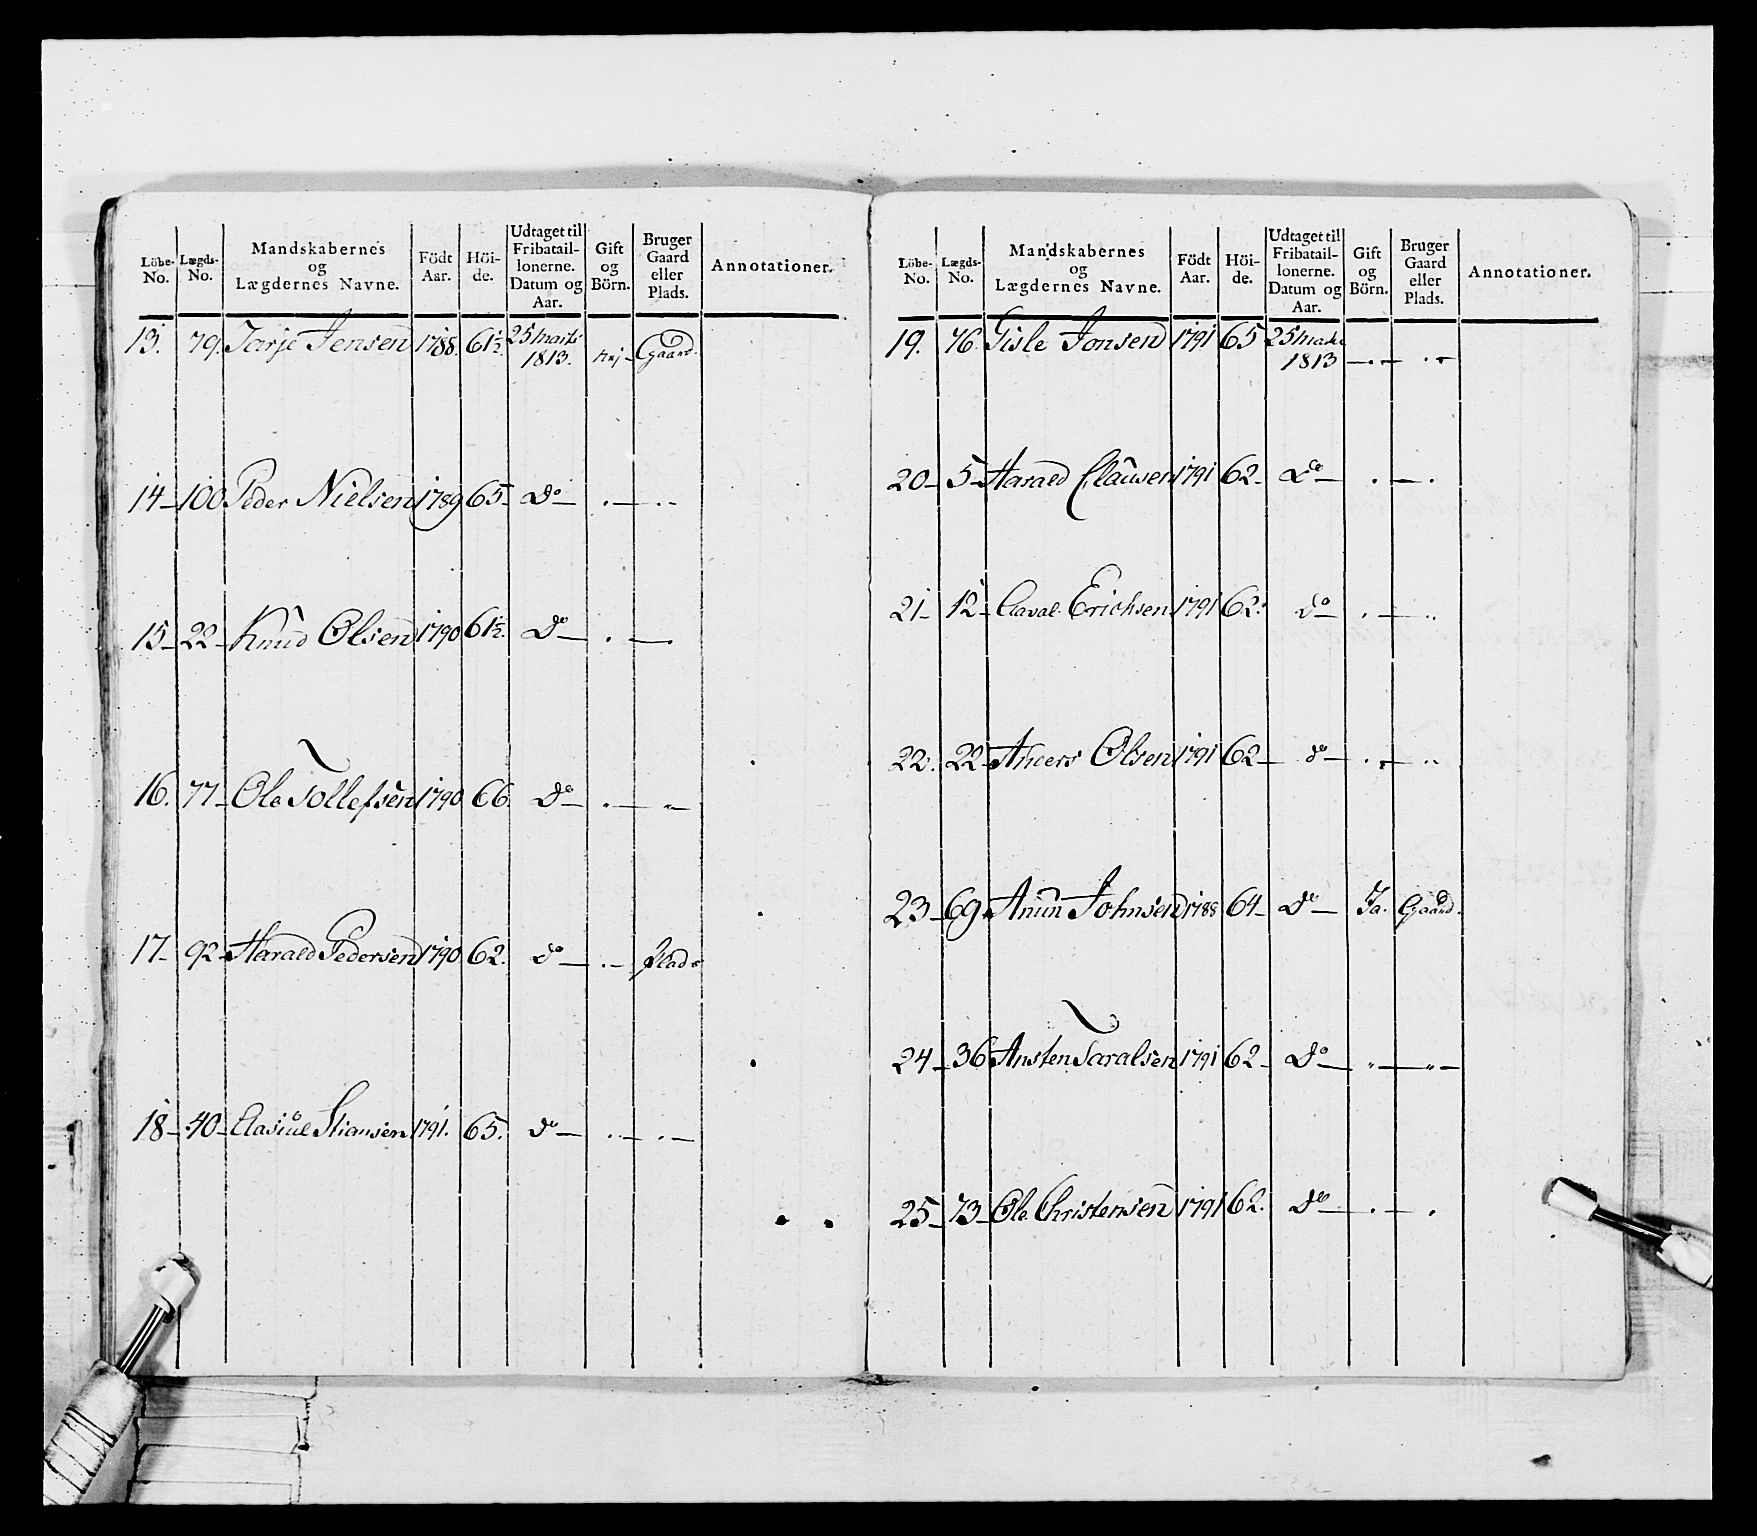 Löbe-No. Lægds-No. Mandskabernes og Lægdernes Navne. Födt Aar. Höi-de. Udtaget til Fribatail-lonerne. Datum og Aar. Gift og Börn. Bruger Gaard eller Plads. Annotationer.
13. 79. Tarje Jensen 1788. 61½. 25 marts 1813. Nej - Gaard.
14 - 100 Peder Nielsen 1789 65 - do - . - . -
15 - 22 - Knud Olsen 1790 61½. do - . - .
16. 77 - Ole Tollefsen 1790 66. do - . - " -
17 - 92 - Harald Pedersen 1790 62. do - . - Plads
18 - 40 - Aasiul Stiansen 1791. 65. do - . . - . -
Löbe-No. Lægds-No. Mandskabernes og Lægdernes Navne. Födt Aar. Höi-de. Udtaget til Fribatail-lonerne. Datum og Aar. Gift og Börn. Bruger Gaard eller Plads. Annotationer.
19. 76. Gisle Jonsen 1791 65 25 marts 1813 - . - . -
20 - 5 - Harald Clausen 1791 62 - do - . - .
21 - 12 - Aaval Erichsen 1791 62. do - . - ..
22. 22 - Anders Olsen 1791 62 - do - . - ..
23 - 69. Anun Johnsen 1788 64 - do - Ja. Gaard.
24 - 36 Ansten Taralsen 1791 62 - do - " - " -
25 - 73 - Ole Christensen 1791 62. do - . - .